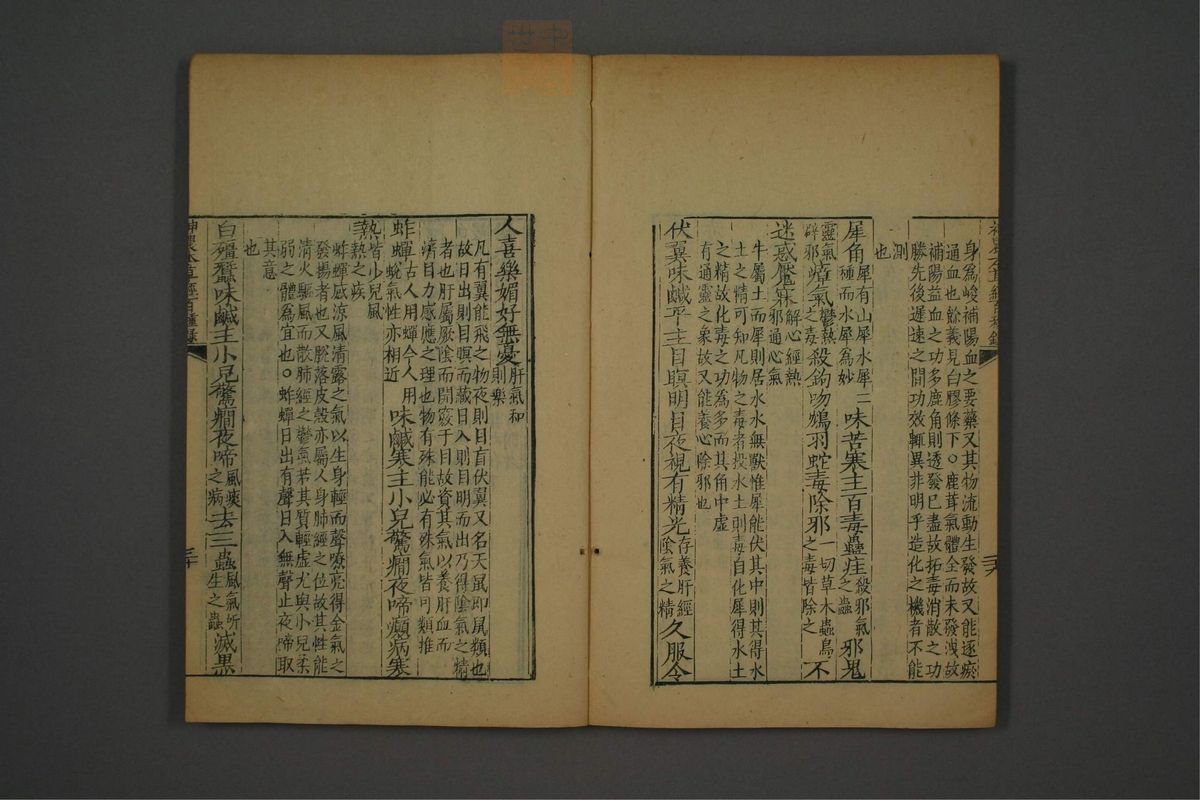 神農本草經百種錄
二九
身為峻補陽血之要藥又其物流動生發故又能逐瘀
通血也餘義見白膠條下○鹿茸氣體全而未發洩故
補陽益血之功多鹿角則透發已盡故拓毒消散之功
勝先後遲速之間功效輒異非明乎造化之機者不能
測
也
犀角犀有山犀水犀二種而水犀為妙味苦寒主百毒蠱疰殺邪氣之蠱邪鬼
靈氣辟邪瘴氣鬱熱之毒殺鉤吻鴆羽蛇毒除邪一切草木蟲鳥之毒皆除之不
迷惑魘寐解心經熱邪通心氣
牛屬土而犀則居水水無獸惟犀能伏其中則其得水
土之精可知凡物之毒者投水土則毒自化犀得水土
之精故化毒之功為多而其角中虛
有通靈之象故又能養心除邪也
伏翼味鹹平主目瞑明目夜視有精光存養肝經陰氣之精久服令
人喜樂媚好無憂肝氣和則樂
凡有翼能飛之物夜則目盲伏翼又名天鼠即鼠類也
故日出則目瞑而藏日入則目明而出乃得陰氣之精
者也肝屬厥陰而開竅于目故資其氣以養肝血而
濟目力感應之理也物有殊能必有殊氣皆可類推
蚱蟬古人用蟬今人用蛻氣性亦相近味鹹寒主小兒驚癇夜啼癲病寒
熱皆小兒風熱之疾
蚱蟬感涼風清露之氣以生身輕而聲嘹亮得金氣之
發揚者也又脫落皮殼亦屬人身肺經之位故其性能
清火驅風而散肺經之鬱氣若其質輕虛尤與小兒柔
弱之體為宜也○蚱蟬日出有聲日入無聲止夜啼取
其意
也
白殭蠶味鹹主小兒驚癇夜啼風痰之病去三蟲風氣所生之蟲滅黑
神農本草經百種錄
三十